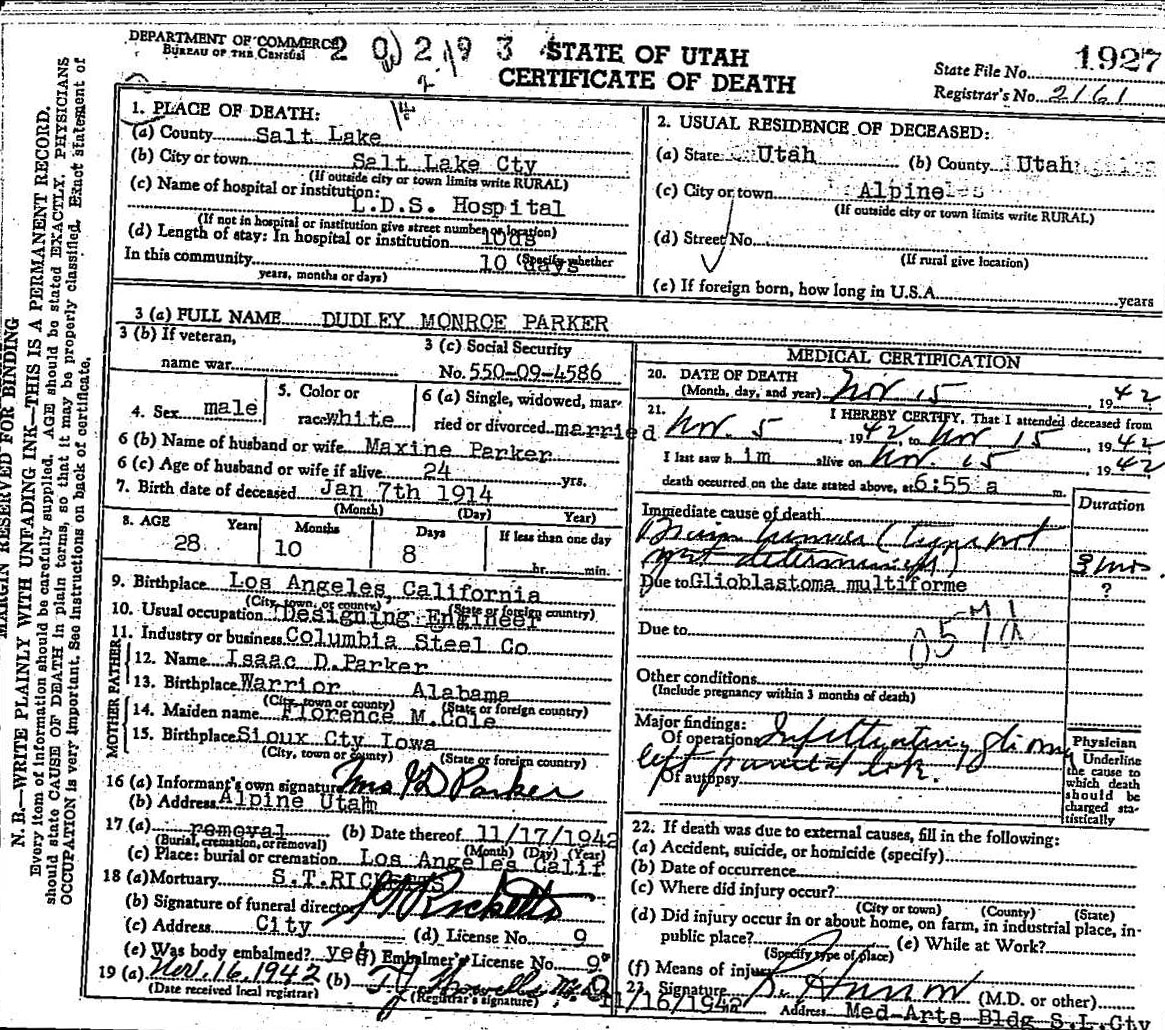 MARGIN RESERVED FOR BINDING
N. B.—WRITE PLAINLY WITH UNFADING INK—THIS IS A PERMANENT RECORD.
Every item of information should be carefully supplied. AGE should be stated EXACTLY. PHYSICIANS
should state CAUSE OF DEATH in plain terms, so that it may be properly classified. Exact statement of
OCCUPATION is very important. See instructions on back of certificate.
DEPARTMENT OF COMMERCE
BUREAU OF THE CENSUS
STATE OF UTAH
CERTIFICATE OF DEATH
State File No. 1927
Registrar's No. 2161
1. PLACE OF DEATH:
(a) County Salt Lake
(b) City or town Salt Lake Cty
(If outside city or town limits write RURAL)
(c) Name of hospital or institution:
L.D.S. Hospital
(If not in hospital or institution give street number or location)
(d) Length of stay: In hospital or institution 10ds
(Specify whether
In this community 10 days
years, months or days)
2. USUAL RESIDENCE OF DECEASED:
(a) State Utah (b) County Utah
(c) City or town Alpine
(If outside city or town limits write RURAL)
(d) Street No.
(If rural give location)
(e) If foreign born, how long in U.S.A. years
3 (a) FULL NAME DUDLEY MONROE PARKER
3 (b) If veteran,
name war
3 (c) Social Security
No. 550-09-4586
4. Sex male
5. Color or
race white
6 (a) Single, widowed, mar-
ried or divorced married
6 (b) Name of husband or wife Maxine Parker
6 (c) Age of husband or wife if alive 24 yrs.
7. Birth date of deceased Jan 7th 1914
(Month) (Day) Year)
8. AGE Years Months Days If less than one day
28 10 8 hr. min.
9. Birthplace Los Angeles, California
(City, town, or county) (State or foreign country)
10. Usual occupation Designing Engineer
11. Industry or business Columbia Steel Co
FATHER
12. Name Isaac D. Parker
13. Birthplace Warrior Alabama
(City, town or county) (State or foreign country)
MOTHER
14. Maiden name Florence M. Cole
15. Birthplace Sioux Cty Iowa
(City, town or county) (State or foreign country)
16 (a) Informant's own signature Mrs ID Parker
(b) Address Alpine Utah
17 (a) removal (b) Date thereof 11/17/1942
(Burial, cremation, or removal) (Month) (Day) (Year)
(c) Place: burial or cremation Los Angeles Calif
18 (a) Mortuary S.T.RICKETTS
(b) Signature of funeral director Ricketts
(c) Address City (d) License No. 9
(e) Was body embalmed? yes (f) Embalmer's License No. 9
19 (a) Nov. 16, 1942 (b)
(Date received local registrar) (Registrar's signature)
MEDICAL CERTIFICATION
20. DATE OF DEATH
(Month, day, and year) Nov 15, 1942
21. I HEREBY CERTIFY, That I attended deceased from
Nov. 5, 1942, to Nov 15, 1942
I last saw h im alive on Nov. 15, 1942
death occurred on the date stated above, at 6:55 a m.
Duration
Immediate cause of death
Brain tumor (type not
yet determined) 3 mos.
Due to Glioblastoma multiforme ?
Due to
Other conditions
(Include pregnancy within 3 months of death)
Major findings:
Of operations Infiltrating glioma
left parietal lobe.
Of autopsy
Physician
Underline
the cause to
which death
should be
charged sta-
tistically
22. If death was due to external causes, fill in the following:
(a) Accident, suicide, or homicide (specify)
(b) Date of occurrence
(c) Where did injury occur?
(City or town) (County) (State)
(d) Did injury occur in or about home, on farm, in industrial place, in-
public place? (e) While at Work?
(Specify type of place)
(f) Means of injury
23. Signature (M.D. or other)
11/16/1942 Address Med-Arts Bldg S.L. Cty